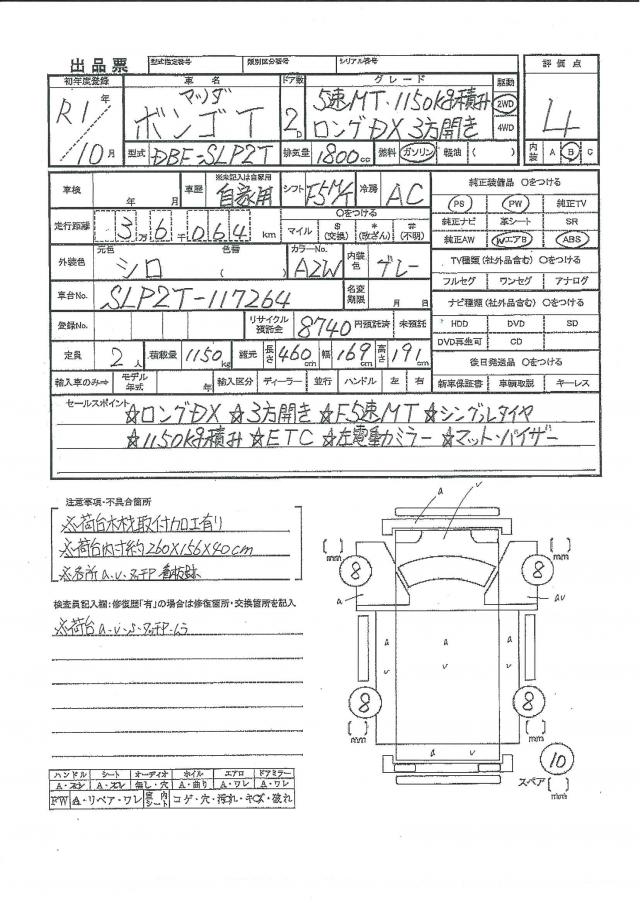 出品票 型式指定番号 類別区分番号 シリアル番号
初年度登録 車名 ドア数 グレード 駆動 評価点
R1年 10月 マツダ ボンゴT 2D 5速MT・1150kg積み 2WD 4
ロングDX 3方開き 4WD
型式 DBF-SLP2T 排気量 1800cc 燃料 ガソリン 軽油 ( ) 内装 A B C
車検 年 月 車歴 ※未記入は自家用 自家用 シフト F5MT 冷房 AC
純正装備品 ○をつける
走行距離 3万6千064km ○をつける マイル $(交換) *(改ざん) #(不明)
PS PW 純正TV
純正ナビ 革シート SR
純正AW WエアB ABS
外装色 元色 シロ 色替 ( ) カラーNo. A2W 内装色 グレー
TV種類(社外品含む) ○をつける
フルセグ ワンセグ アナログ
車台No. SLP2T-117264 名変期限 月 日
ナビ種類(社外品含む) ○をつける
登録No. リサイクル預託金 8740円預託済 未預託
HDD DVD SD
DVD再生可 CD
定員 2人 積載量 1150kg 諸元 長さ460cm 幅169cm 高さ191cm
後日発送品 ○をつける
輸入車のみ⇒ モデル年式 年 輸入区分 ディーラー 並行 ハンドル 左 右
新車保証書 車輌取説 キーレス
セールスポイント ☆ロングDX ☆3方開き ☆F5速MT ☆シングルタイヤ
☆1150kg積み ☆ETC ☆左電動カミラー ☆マット・バイザー
注意事項・不具合箇所
※荷台木材取付加工有り
※荷台内寸約260×156×40cm
※各所a.v.タッチP 看板跡
検査員記入欄:修復歴「有」の場合は修復箇所・交換箇所を記入
※荷台a-v-s-タッチP-
a v
8 [ ]mm 8 [ ]mm
a av
a a
v v v
8 [ ]mm 8 [ ]mm
a v
10
スペア [ ]mm
ハンドル シート オーディオ ホイル エアロ ドアミラー
A・スレ A・スレ 無し・穴 A・曲り A・ワレ A・ワレ
FW A・リペア・ワレ 室内シート コゲ・穴・汚れ・キズ・破れ